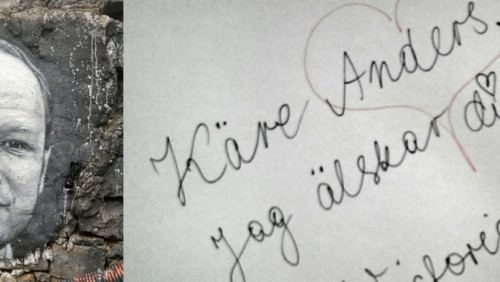 Käre Anders.
Jag älskar di
Victoria